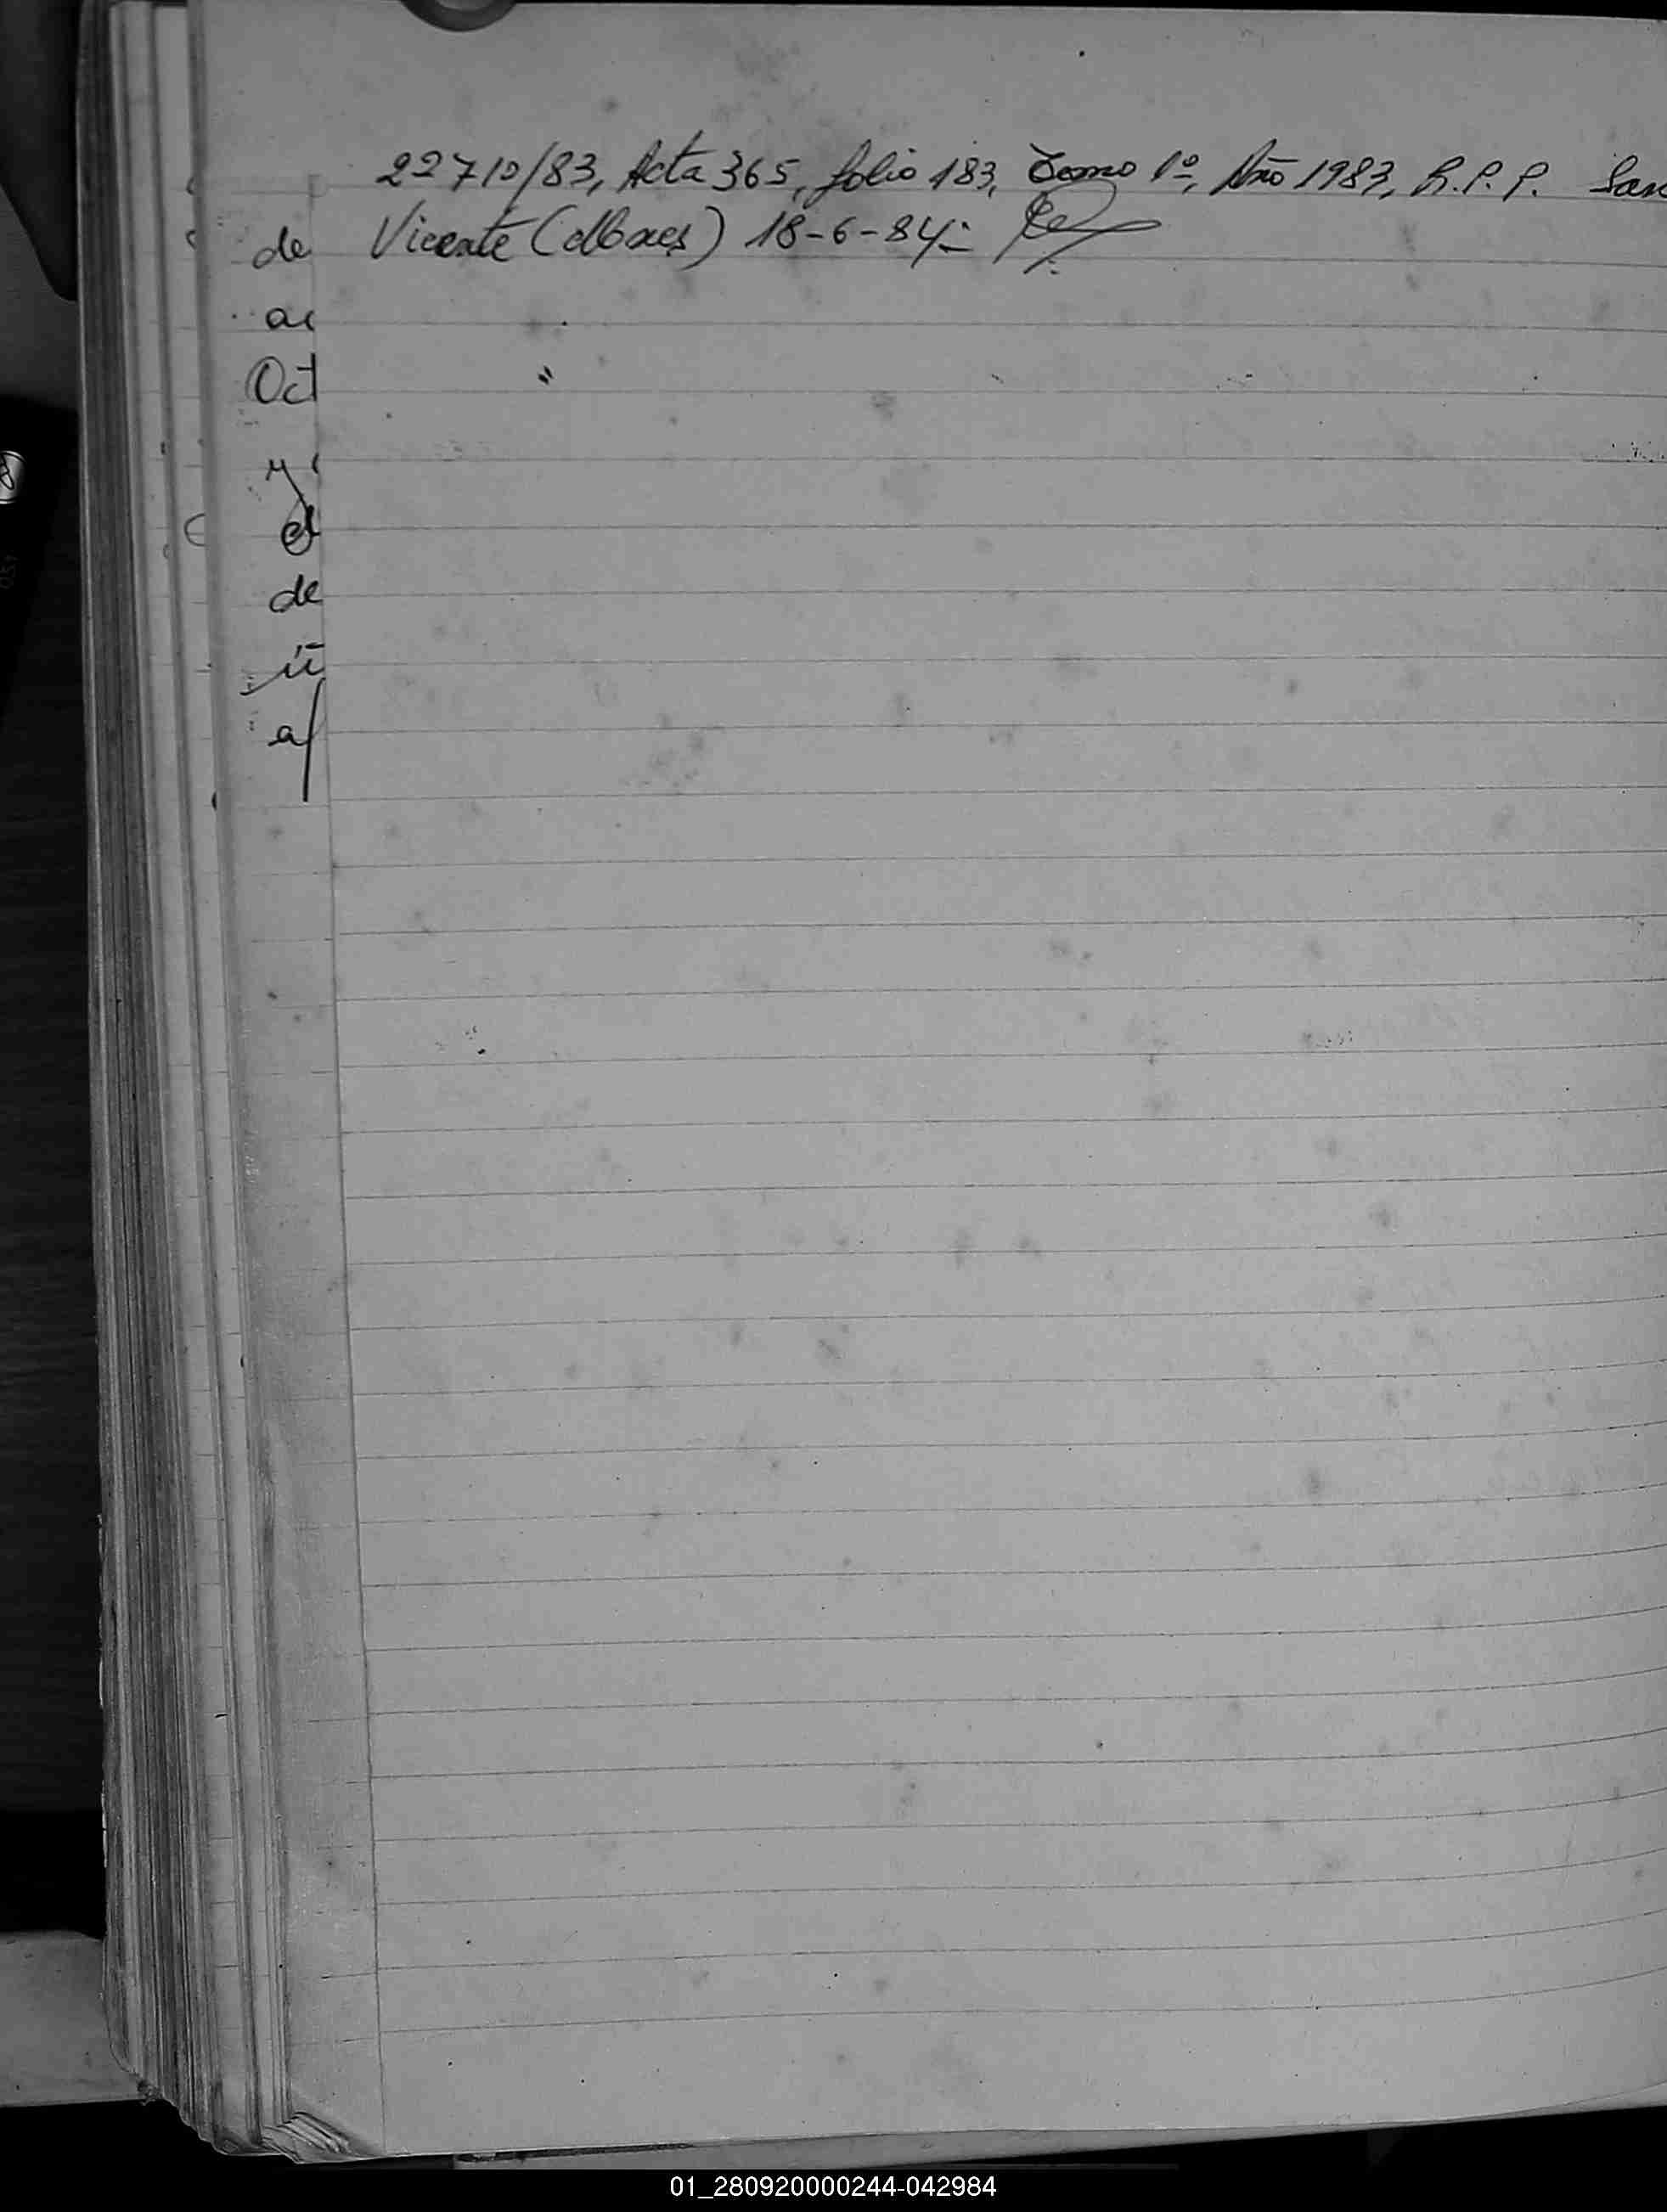 22710/83, Acta 365, folio 183, Tomo 1º, Año 1983, R.P.P. San
Vicente (Mnes) 18-6-84.-
de
ac
Oct
y
el
de
a
01_280920000244-042984